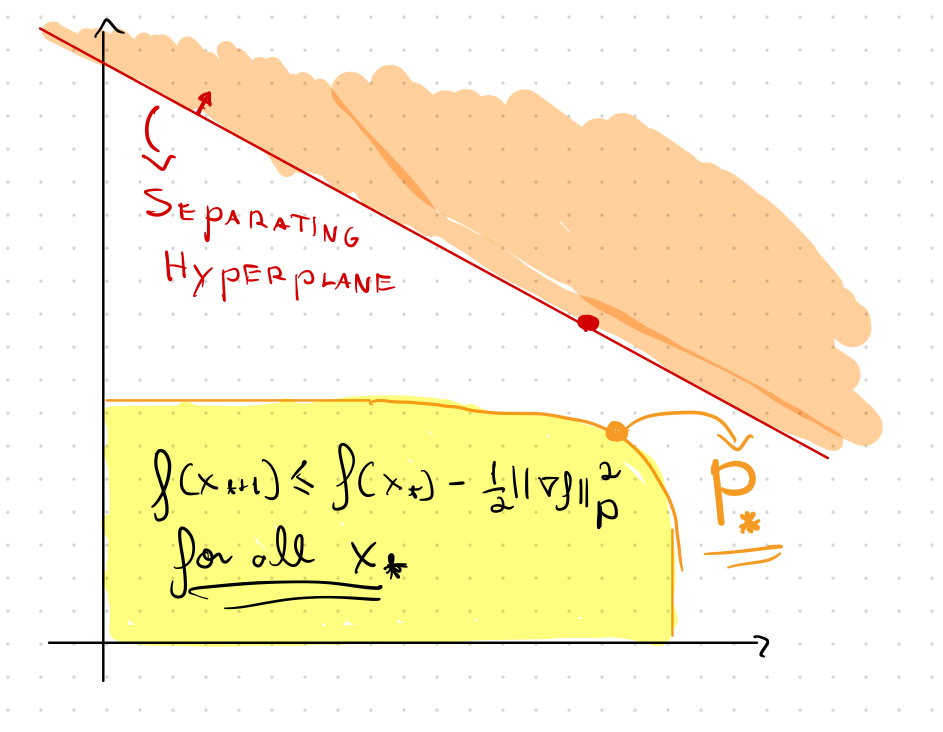 SEPARATING
HYPERPLANE
f(x_{*+1}) ≤ f(x_*) - 1/2 ||∇f||_P^2
for all x_*
P_*